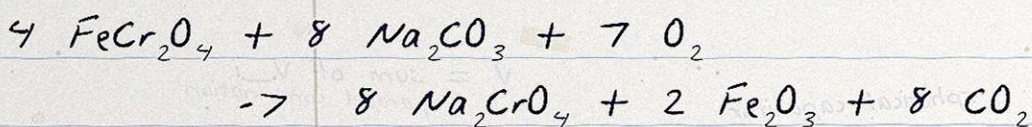 4 FeCr₂O₄ + 8 Na₂CO₃ + 7 O₂
-> 8 Na₂CrO₄ + 2 Fe₂O₃ + 8 CO₂